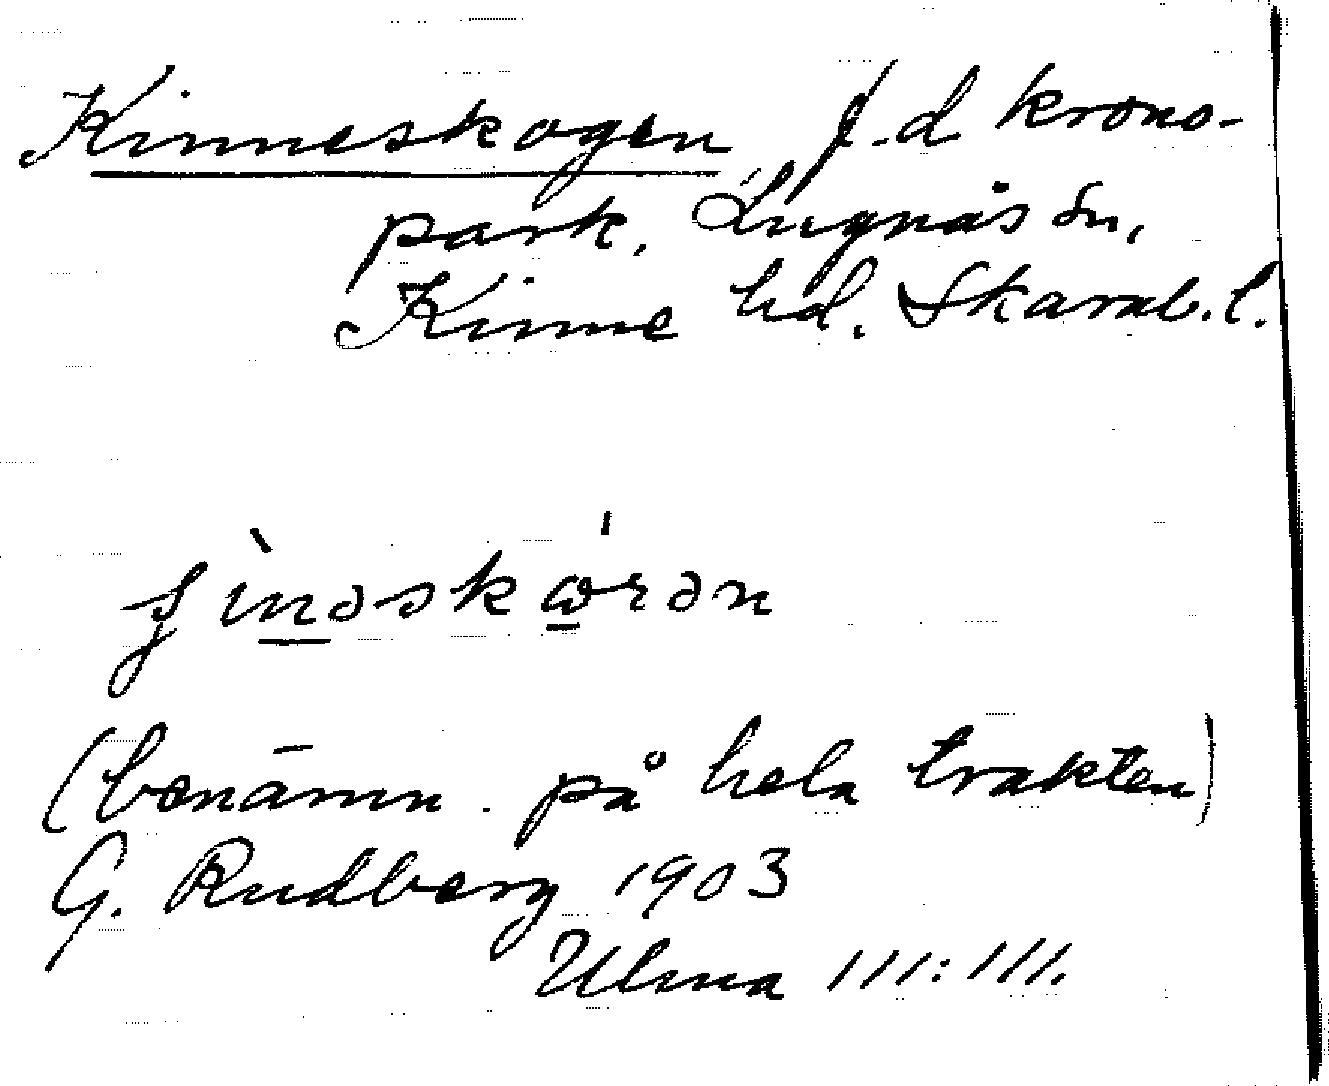 Kinneskogen f.d krono-
park, Lugnås sn,
Kinne hd. Skarab. l.
(benämn. på hela trakten)
G. Rudberg 1903
Ulma 111:111.